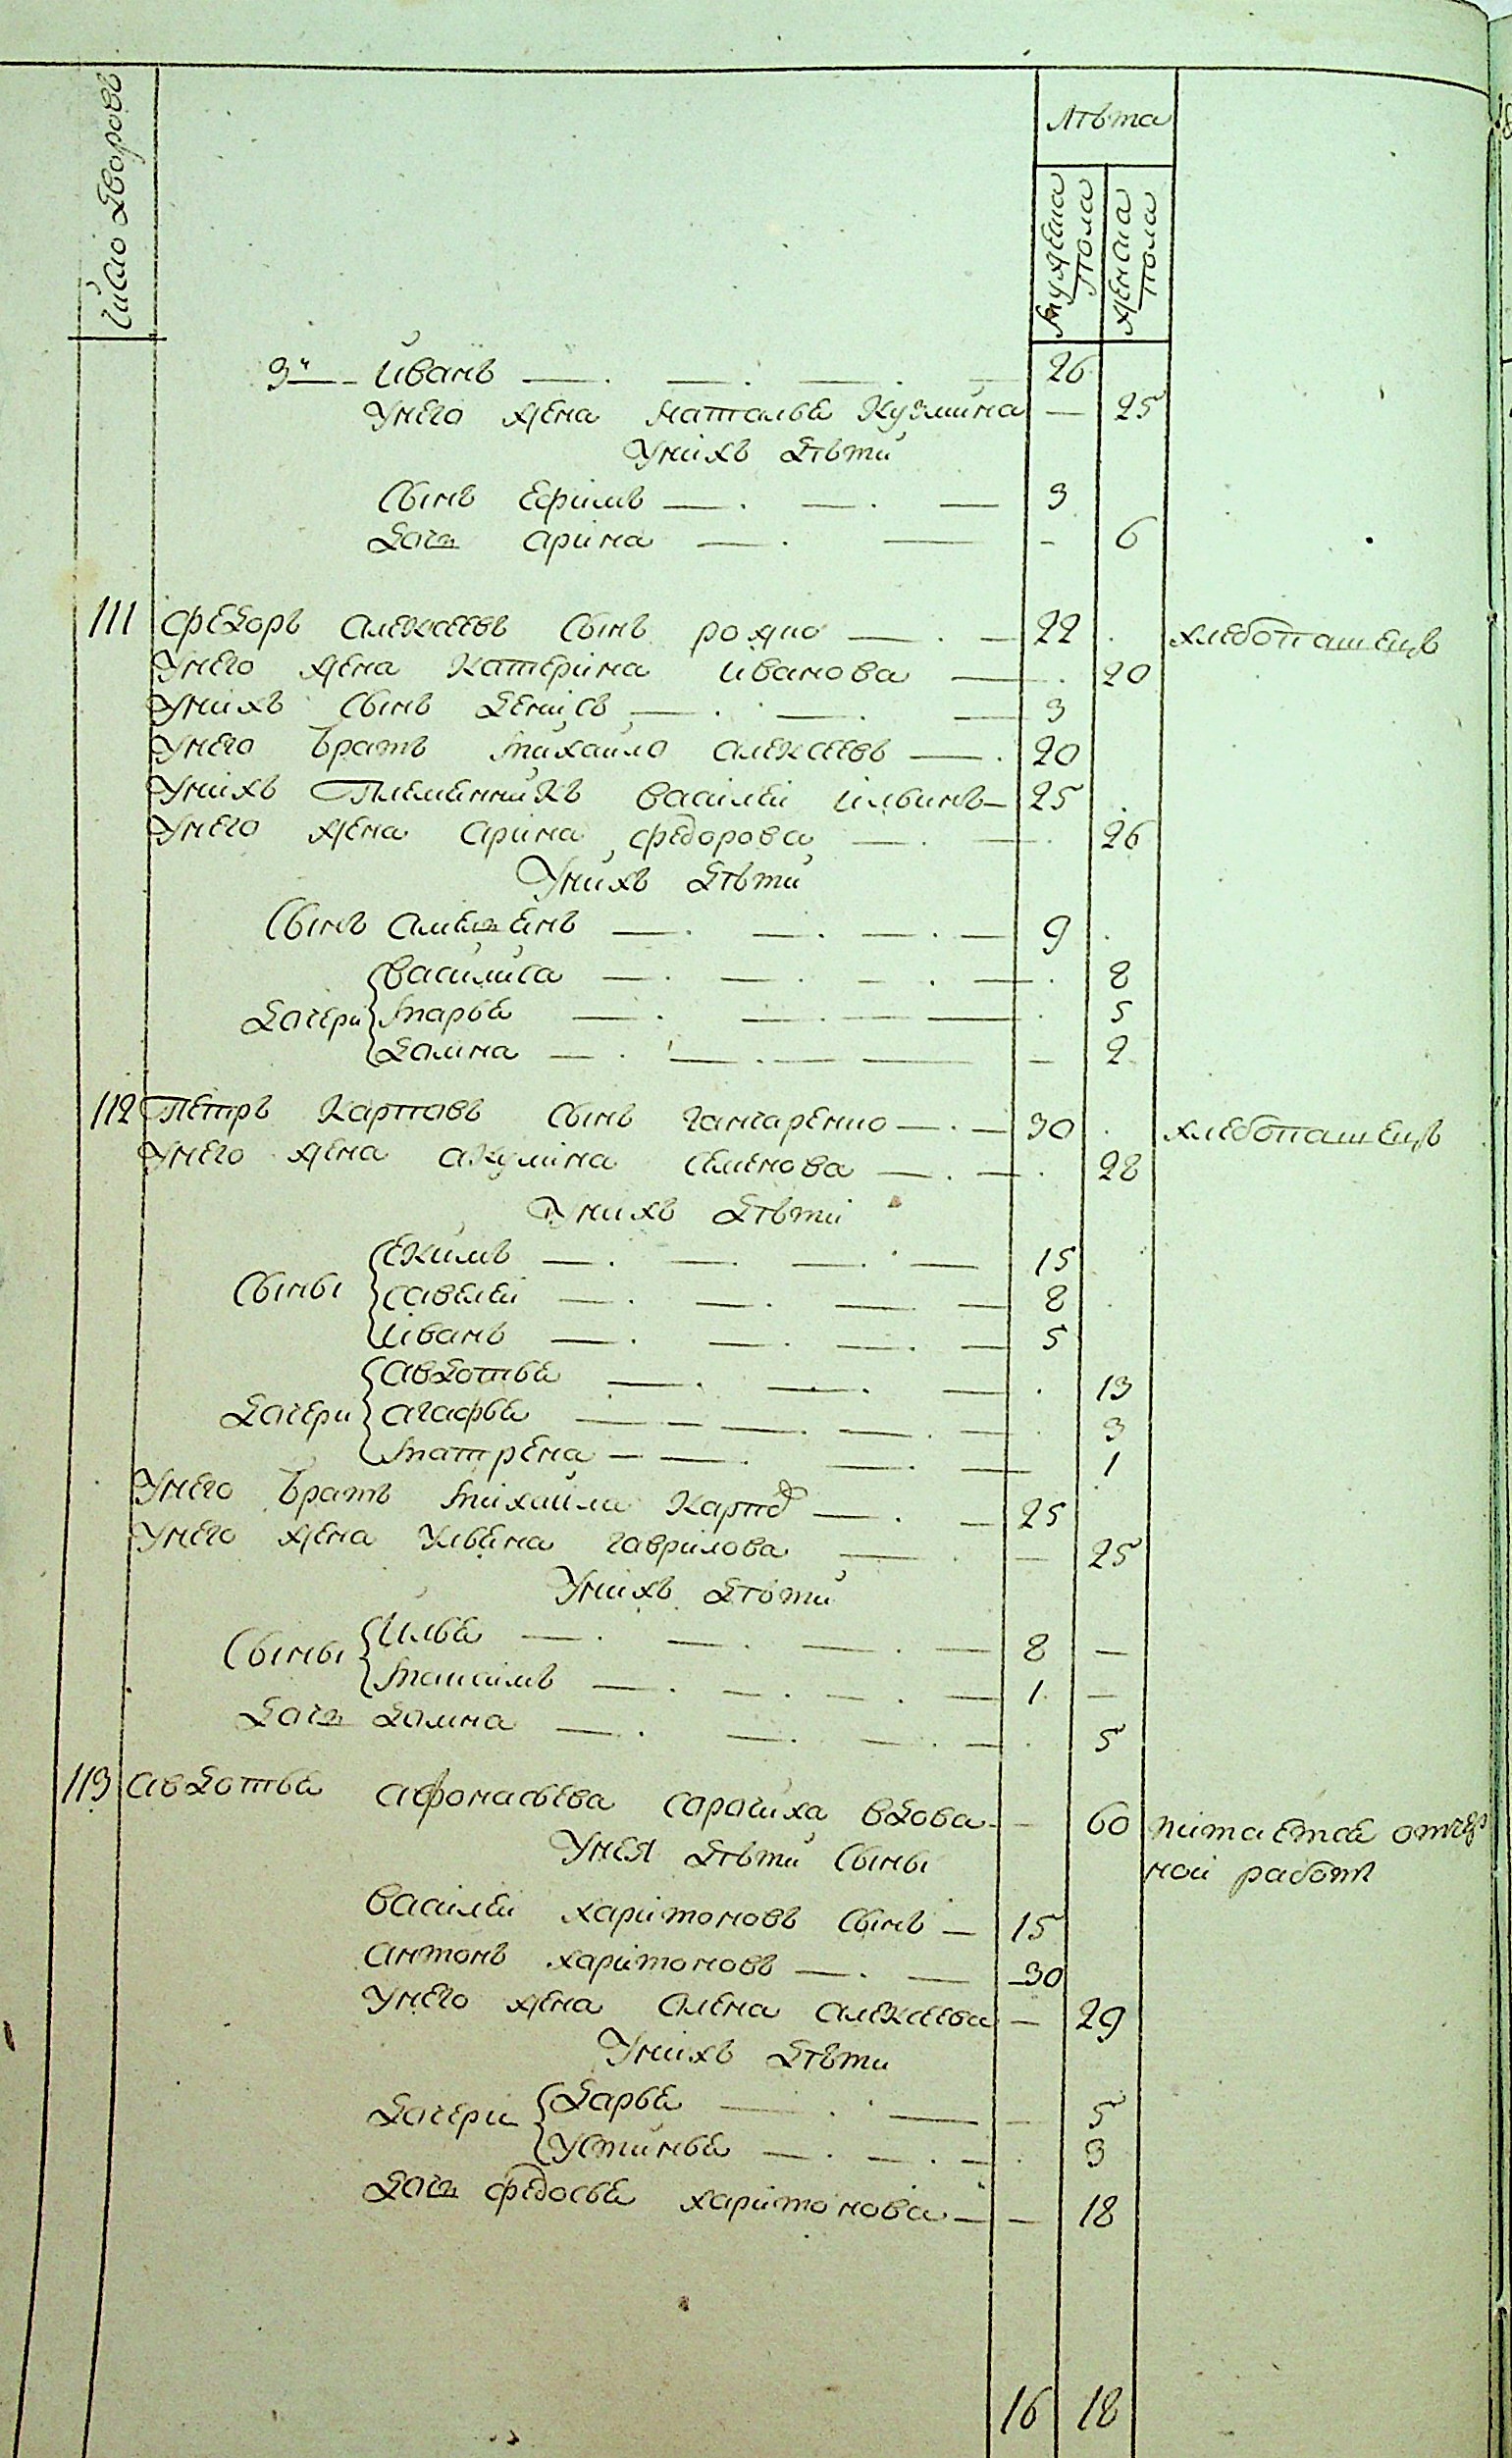 Число дворовъ
Лѣта
мужеска пола
женска пола
3й Иванъ 26
Унего жена наталья Кузмина 25
Унихъ дѣти
Сынъ Ефимъ 3
дочь арина 6
111 федоръ алексеевъ сынъ рожко 22 хлебопашецъ
Унего жена Катерина иванова 20
Унихъ сынъ денисъ 3
Унего братъ михайло алексеевъ 20
Унихъ Племянникъ василей ильинъ 25
Унего жена арина федорова 26
Унихъ дѣти
Сынъ 9
дочери василиса 8
марья 5
домна 2
112 Петръ Карповъ сынъ ганчаренко 30 хлебопашецъ
Унего жена акулина семенова 28
Унихъ дѣти
Сыны Екимъ 15
савелей 8
иванъ 5
дочери авдотья 13
агафья 3
матрена 1
Унего братъ михайла Карпов 25
Унего жена Ульяна гаврилова 25
Унихъ дѣти
Сыны Илья 8
1
дочь домна 5
113 авдотья афонасьева сорочиха вдова 60 питается отчер
Унея дѣти сыны
ной работы
василей харитоновъ сынъ 15
антонъ харитоновъ 30
Унего жена алена алексеева 29
Унихъ дѣти
дочери дарья 5
устинья 3
дочь федосья харитонова 18
16 18